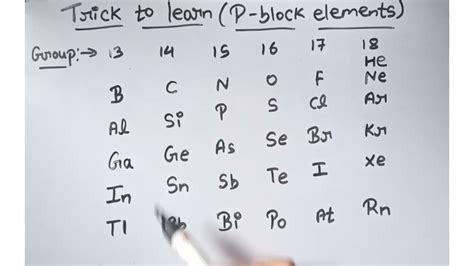 Trick to learn (P-block elements)
Group:→ 13 14 15 16 17 18
He
B C N O F Ne
Al Si P S Cl Ar
Ga Ge As Se Br Kr
In Sn Sb Te I Xe
Tl Bi Po At Rn